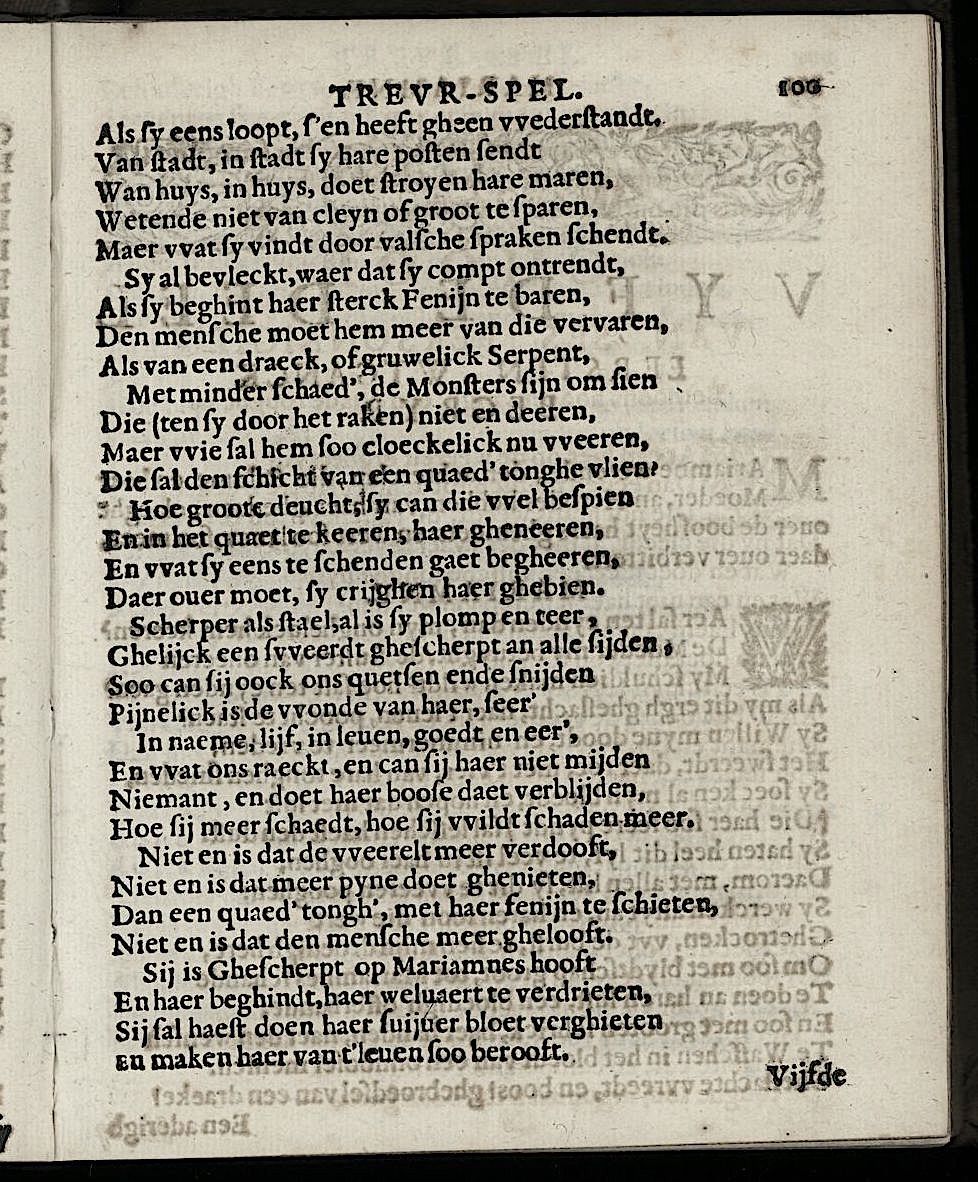 TREVR-SPEL. 100
Als ſy eens loopt, ſ'en heeft gheen vvederſtandt.
Van ſtadt, in ſtadt ſy hare poſten ſendt
Wan huys, in huys, doet ſtroyen hare maren,
Wetende niet van cleyn of groot te ſparen,
Maer vvat ſy vindt door valſche ſpraken ſchendt.
Sy al bevleckt, waer dat ſy compt ontrendt,
Als ſy beghint haer ſterck Fenijn te baren,
Den menſche moet hem meer van die vervaren,
Als van een draeck, of gruwelick Serpent,
Met minder ſchaed', de Monſters ſijn om ſien
Die (ten ſy door het raken) niet en deeren,
Maer vvie ſal hem ſoo cloeckelick nu vveeren,
Die ſal den ſchicht van een quaed' tonghe vlien?
Hoe groote deucht, ſy can die vvel beſpien
En in het quaet te keeren, haer gheneeren,
En vvat ſy eens te ſchenden gaet begheeren,
Daer ouer moet, ſy crijghen haer ghebien.
Scherper als ſtael, al is ſy plomp en teer,
Ghelijck een ſvveerdt gheſcherpt an alle ſijden,
Soo can ſij oock ons quetſen ende ſnijden
Pijnelick is de vvonde van haer, ſeer'
In naeme, lijf, in leuen, goedt en eer',
En vvat ons raeckt, en can ſij haer niet mijden
Niemant, en doet haer booſe daet verblijden,
Hoe ſij meer ſchaedt, hoe ſij vvildt ſchaden meer.
Niet en is dat de vveerelt meer verdooft,
Niet en is dat meer pyne doet ghenieten,
Dan een quaed' tongh', met haer fenijn te ſchieten,
Niet en is dat den menſche meer ghelooft.
Sij is Gheſcherpt op Mariamnes hooft
En haer beghindt, haer weluaert te verdrieten,
Sij ſal haeſt doen haer ſuijuer bloet verghieten
En maken haer van t'leuen ſoo berooft.
Vijfde